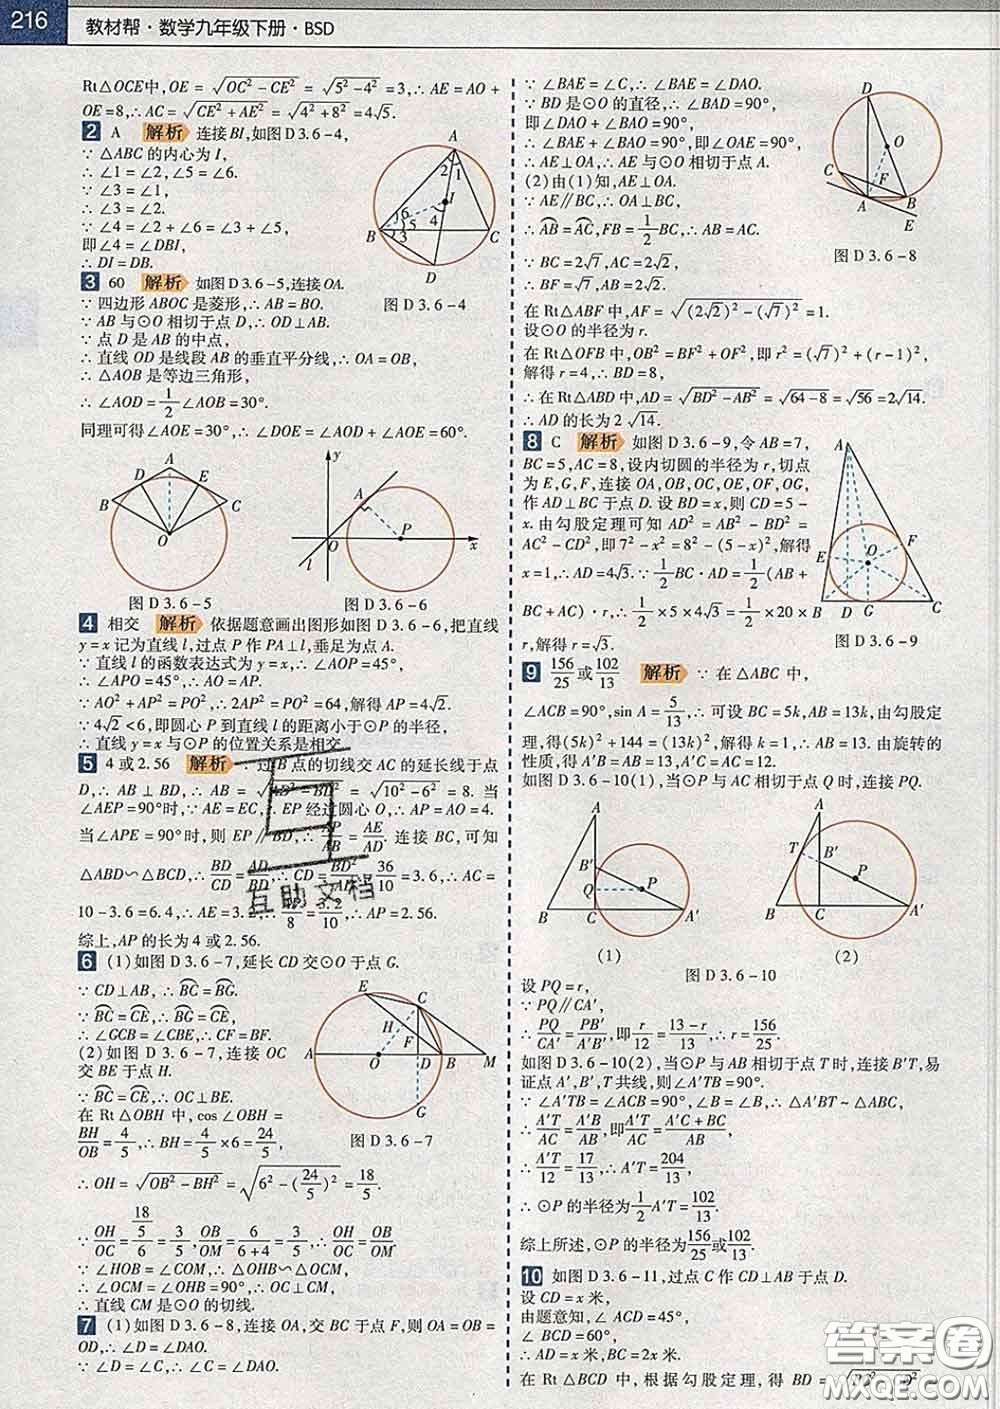 216 教材帮·数学九年级下册·BSD
Rt△OCE中,OE = √(OC² − CE²) = √(5² − 4²) = 3,∴ AE = AO +
OE = 8,∴ AC = √(CE² + AE²) = √(4² + 8²) = 4√5.
2 A 解析 连接 BI,如图 D 3.6-4,
∵ △ABC 的内心为 I,
∴ ∠1 = ∠2,∠5 = ∠6.
∵ ∠3 = ∠1,
∴ ∠3 = ∠2.
∵ ∠4 = ∠2 + ∠6 = ∠3 + ∠5,
即∠4 = ∠DBI,
∴ DI = DB.
图 D 3.6-4
3 60 解析 如图 D 3.6-5,连接 OA.
∵ 四边形 ABOC 是菱形,∴ AB = BO.
∵ AB 与⊙O 相切于点 D,∴ OD⊥AB.
∵ 点 D 是 AB 的中点,
∴ 直线 OD 是线段 AB 的垂直平分线,∴ OA = OB,
∴ △AOB 是等边三角形,
∴ ∠AOD = 1/2 ∠AOB = 30°.
同理可得∠AOE = 30°,∴ ∠DOE = ∠AOD + ∠AOE = 60°.
图 D 3.6-5 图 D 3.6-6
4 相交 解析 依据题意画出图形如图 D 3.6-6,把直线
y = x 记为直线 l,过点 P 作 PA⊥l,垂足为点 A.
∵ 直线 l 的函数表达式为 y = x,∴ ∠AOP = 45°,
∴ ∠APO = 45°,∴ AO = AP.
∵ AO² + AP² = PO²,∴ 2AP² = PO² = 64,解得 AP = 4√2.
∵ 4√2 < 6,即圆心 P 到直线 l 的距离小于⊙P 的半径,
∴ 直线 y = x 与⊙P 的位置关系是相交.
5 4 或 2.56 解析 ∵ 过 B 点的切线交 AC 的延长线于点
D,∴ AB⊥BD,∴ AB = √(AD² − BD²) = √(10² − 6²) = 8. 当
∠AEP = 90°时,∵ AE = EC,∴ EP 经过圆心 O,∴ AP = AO = 4.
当∠APE = 90°时,则 EP∥BD,∴ AP/AB = AE/AD. 连接 BC,可知
△ABD∽△BCD,∴ BD/CD = AD/BD,∴ CD = BD²/AD = 36/10,∴ AC =
10 − 3.6 = 6.4,∴ AE = 3.2,∴ AP/8 = 3.2/10,∴ AP = 2.56.
综上,AP 的长为 4 或 2.56.
6 (1)如图 D 3.6-7,延长 CD 交⊙O 于点 G.
∵ CD⊥AB,∴ B͡C = B͡G.
∵ B͡C = C͡E,∴ C͡E = B͡G,
∴ ∠GCB = ∠CBE,∴ CF = BF.
(2)如图 D 3.6-7,连接 OC
交 BE 于点 H.
∵ B͡C = C͡E,∴ OC⊥BE.
在 Rt△OBH 中,cos∠OBH =
BH/OB = 4/5,∴ BH = 4/5 × 6 = 24/5,
图 D 3.6-7
∴ OH = √(OB² − BH²) = √(6² − (24/5)²) = 18/5.
∵ OH/OC = (18/5)/6 = 3/5, OB/OM = 6/(6+4) = 3/5,∴ OH/OC = OB/OM.
∵ ∠HOB = ∠COM,∴ △OHB∽△OCM,
∴ ∠OCM = ∠OHB = 90°,∴ OC⊥CM,
∴ 直线 CM 是⊙O 的切线.
7 (1)如图 D 3.6-8,连接 OA,交 BC 于点 F,则 OA = OB =
OD,∴ ∠D = ∠DAO.
∵ ∠D = ∠C,∴ ∠C = ∠DAO.
∵ ∠BAE = ∠C,∴ ∠BAE = ∠DAO.
∵ BD 是⊙O 的直径,∴ ∠BAD = 90°,
即∠DAO + ∠BAO = 90°,
∴ ∠BAE + ∠BAO = 90°,即∠OAE = 90°,
∴ AE⊥OA,∴ AE 与⊙O 相切于点 A.
(2)由(1)知,AE⊥OA.
∵ AE∥BC,∴ OA⊥BC,
∴ A͡B = A͡C,FB = 1/2 BC,∴ AB = AC.
图 D 3.6-8
∵ BC = 2√7,AC = 2√2,
∴ BF = √7,AB = 2√2.
在 Rt△ABF 中,AF = √((2√2)² − (√7)²) = 1.
设⊙O 的半径为 r.
在 Rt△OFB 中,OB² = BF² + OF²,即 r² = (√7)² + (r − 1)²,
解得 r = 4,∴ BD = 8,
∴ 在 Rt△ABD 中,AD = √(BD² − AB²) = √(64 − 8) = √56 = 2√14.
∴ AD 的长为 2√14.
8 C 解析 如图 D 3.6-9,令 AB = 7,
BC = 5,AC = 8,设内切圆的半径为 r,切点
为 E,G,F,连接 OA,OB,OC,OE,OF,OG,
作 AD⊥BC 于点 D. 设 BD = x,则 CD = 5 −
x. 由勾股定理可知 AD² = AB² − BD² =
AC² − CD²,即 7² − x² = 8² − (5 − x)²,解得
x = 1,∴ AD = 4√3. ∵ 1/2 BC·AD = 1/2 (AB +
BC + AC)·r,∴ 1/2 × 5 × 4√3 = 1/2 × 20 ×
r,解得 r = √3.
图 D 3.6-9
9 156/25 或 102/13 解析 ∵ 在△ABC 中,
∠ACB = 90°,sin A = 5/13,∴ 可设 BC = 5k,AB = 13k,由勾股定
理,得(5k)² + 144 = (13k)²,解得 k = 1,∴ AB = 13. 由旋转的
性质,得 A′B′ = AB = 13,A′C = AC = 12.
如图 D 3.6-10(1),当⊙P 与 AC 相切于点 Q 时,连接 PQ.
(1) (2)
图 D 3.6-10
设 PQ = r,
∵ PQ∥CA′,
∴ PQ/CA′ = PB′/A′B′,即 r/12 = (13 − r)/13,∴ r = 156/25.
如图 D 3.6-10(2),当⊙P 与 AB 相切于点 T 时,连接 B′T,易
证点 A′,B′,T 共线,则∠A′TB = 90°.
∵ ∠A′TB = ∠ACB = 90°,∠B = ∠B,∴ △A′BT ~ △ABC,
∴ A′T/AC = A′B/AB,即 A′T/AC = (A′C + BC)/AB,
∴ A′T/12 = 17/13,∴ A′T = 204/13,
∴ ⊙P 的半径为 1/2 A′T = 102/13.
综上所述,⊙P 的半径为 156/25 或 102/13.
10 如图 D 3.6-11,过点 C 作 CD⊥AB 于点 D.
设 CD = x 米,
由题意知,∠ACD = 45°,
∠BCD = 60°,
∴ AD = x 米,BC = 2x 米.
在 Rt△BCD 中,根据勾股定理,得 BD =
互助文档
答案圈
MXQE.COM